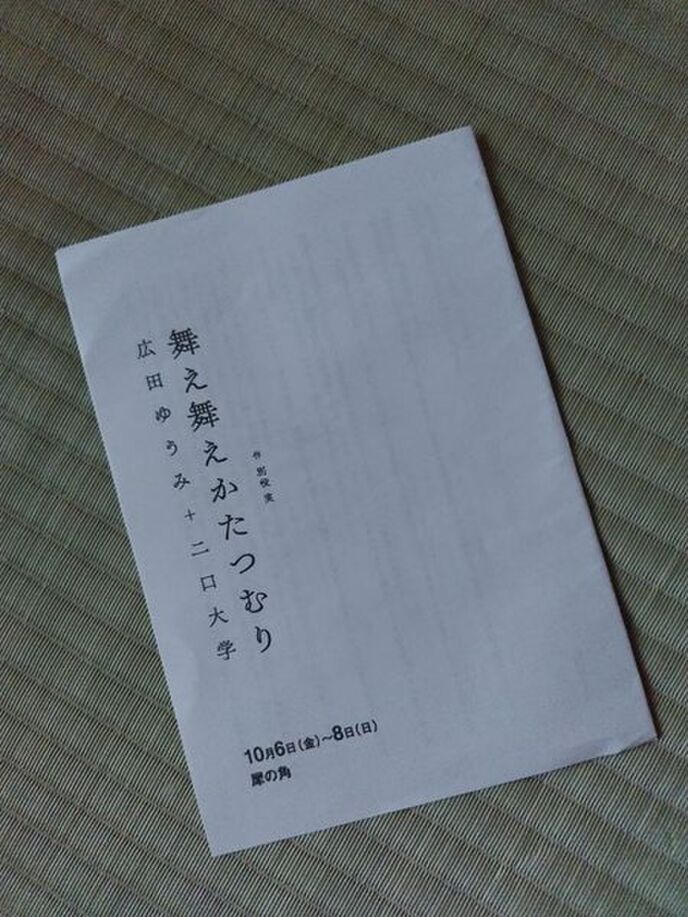 作 別役 実
舞え舞えかたつむり
広田ゆうみ+二口大学
10月6日(金)~8日(日)
犀の角